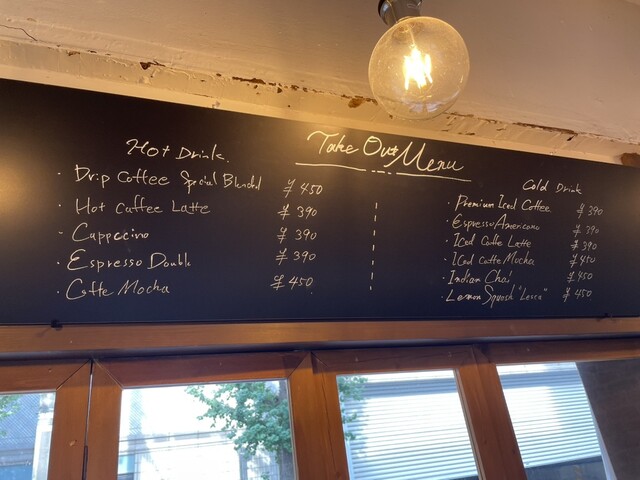 Take Out Menu
Hot Drink.
· Drip Coffee Special Blended ¥450
· Hot Caffee Latte ¥390
- Cappccino ¥390
· Espresso Double ¥390
· Caffe Mocha ¥450
Cold Drink
· Premium Iced Coffee ¥390
· Espresso Americano ¥390
· Iced Caffe Latte ¥390
· Iced Caffe Mocha ¥450
· Indian Chai ¥450
· Lemon Squash ¥450